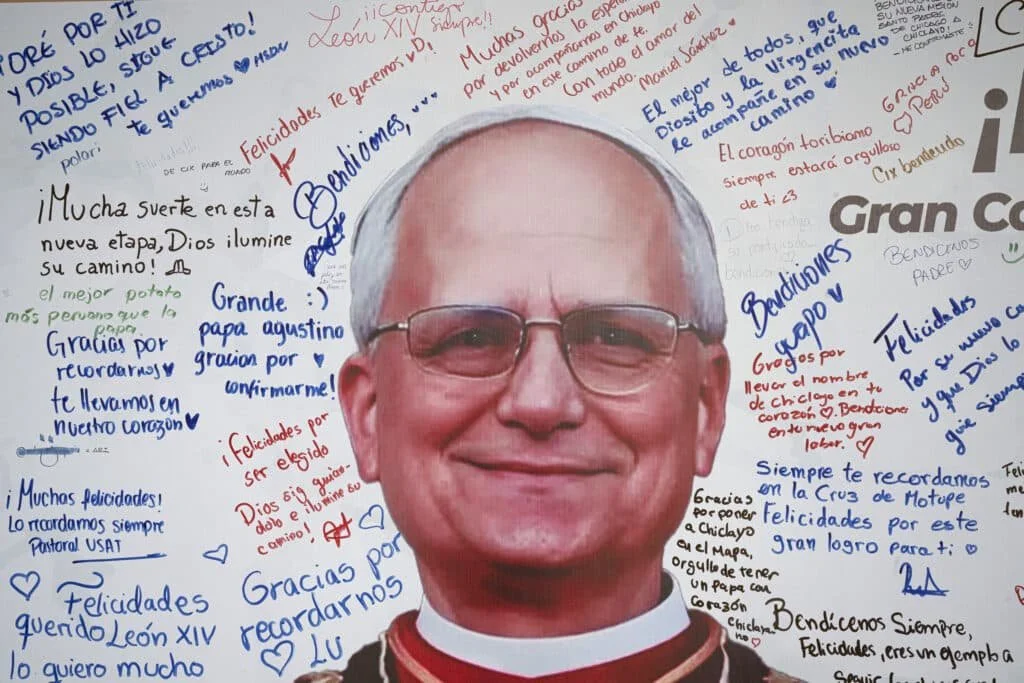 ORÉ POR TI
Y DIOS LO HIZO
POSIBLE, SIGUE
SIENDO FIEL A CRISTO!
te queremos
polari
León XIV
Siempre!!
Felicidades Te queremos
DE CIX PARA EL
MUNDO
Bendiciones,
Muchas gracias
por devolvernos la
y por acompañarnos en Chiclayo
en este camino de fe.
Con todo el amor del
mundo.
Manuel Sánchez
El mejor de todos, que
Diosito y la Virgencita
le acompañe en su nuevo
camino
SU NUEVA MISIÓN
SANTO PADRE
DE CHICAGO A
CHICLAYO!
- ME CONFIRMASTE
GRACIAS
PERÚ
El corazón toribiano
siempre estará orgulloso
de ti <3
Cix bendecido
¡Mucha suerte en esta
nueva etapa, Dios ilumine
su camino!
el mejor potato
más peruano que la
papa
Gracias por
recordarnos
te llevamos en
nuestro corazón
Grande :)
papa agustino
gracian por
confirmarme!
¡Felicidades por
ser elegido
Dios sig guian-
dolo e ilumine su
camino!
¡Muchas felicidades!
Lo recordamos siempre
Pastoral USAT
Felicidades
querido León XIV
lo quiero mucho
Gracias por
recordarnos
LU
Gran Co
BENDICENOS
PADRE
Bendiciones
guapo
Gracias por
llevar el nombre
de Chiclayo en tu
corazón. Bendiciones
en tu nuevo gran
labor.
Felicidades
Por su nuevo ca
y que Dios lo
guie siemp
Siempre te recordamos
en la Cruz de Motupe
Felicidades por este
gran logro para ti
Gracias
por poner
a Chiclayo
en el Mapa,
orgullo de tener
un Papa con
Corazón
Chiclayano
Bendícenos Siempre,
Felicidades, eres un ejemplo a
Seguir